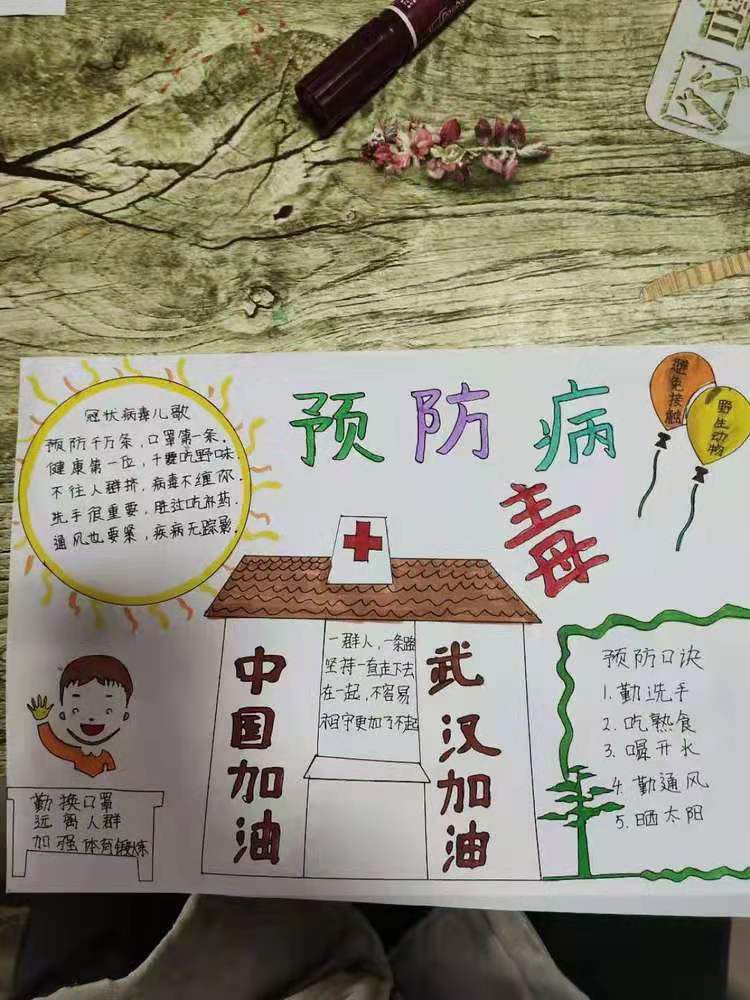 预防病
毒
避免接触
野生动物
冠状病毒儿歌
预防千万条，口罩第一条．
健康第一位，千要吃野味．
不往人群挤，病毒不缠你．
洗手很重要，胜过吃补药
通风也要紧，疾病无踪影．
中国加油
一群人，一条路
坚持一直走下去
在一起，不容易
相守更加了不起
武汉加油
预防口诀
1.勤洗手
2.吃熟食
3.喝开水
4.勤通风
5.晒太阳
勤换口罩
远离人群
加强体育锻炼